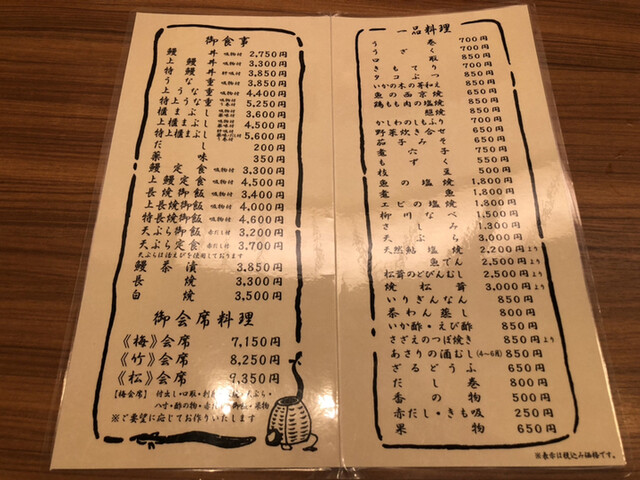 御食事
鰻丼 吸物付 2,750円
上鰻丼 吸物付 3,300円
特鰻丼 肝吸付 3,850円
うな重 吸物付 3,850円
上うな重 吸物付 4,400円
特上うな重 5,250円
櫃まぶし 3,600円
上櫃まぶし 4,500円
特上櫃まぶし 5,600円
だし 200円
薬味 350円
鰻定食 吸物付 3,300円
上鰻定食 吸物付 4,500円
長焼御飯 吸物付 3,400円
上長焼御飯 吸物付 4,000円
特長焼御飯 吸物付 4,600円
天ぷら御飯 赤だし付 3,200円
天ぷら定食 赤だし付 3,700円
天ぷらは活えびを使用しております
鰻茶漬 3,850円
長焼 3,300円
白焼 3,500円
御会席料理
《梅》会席 7,150円
《竹》会席 8,250円
《松》会席 9,350円
【梅会席】 付出し・口取・刺身
八寸・酢の物・赤だし・御飯・果物
※ご要望に応じてお作りいたします
一品料理
う巻 700円
うざく 700円
口取 850円
きもてり
タコぶつ
いかの木の芽和え
魚の西京焼
鶏もも肉の塩焼
照焼
かしわのしもふり 700円
野菜炊き合せ 650円
茄子みそ 650円
煮穴子 750円
もずく 550円
枝豆 500円
魚の塩焼 1,800円
煮魚 1,800円
エビの塩焼 1,800円
柳川なべ 1,500円
さしみ 1,300円
天ぷら 3,000円
天然鮎 塩焼 2,200円より
魚でん 2,500円より
松茸のどびんむし 2,500円より
焼松茸 3,000円より
いりぎんなん 850円
茶わん蒸し 800円
いか酢・えび酢 850円
さざえのつぼ焼き 850円より
あさりの酒むし(4〜6月) 850円
ざるどうふ 650円
だし巻 800円
香の物 500円
赤だし・きも吸 250円
果物 650円
※表示は税込み価格です。